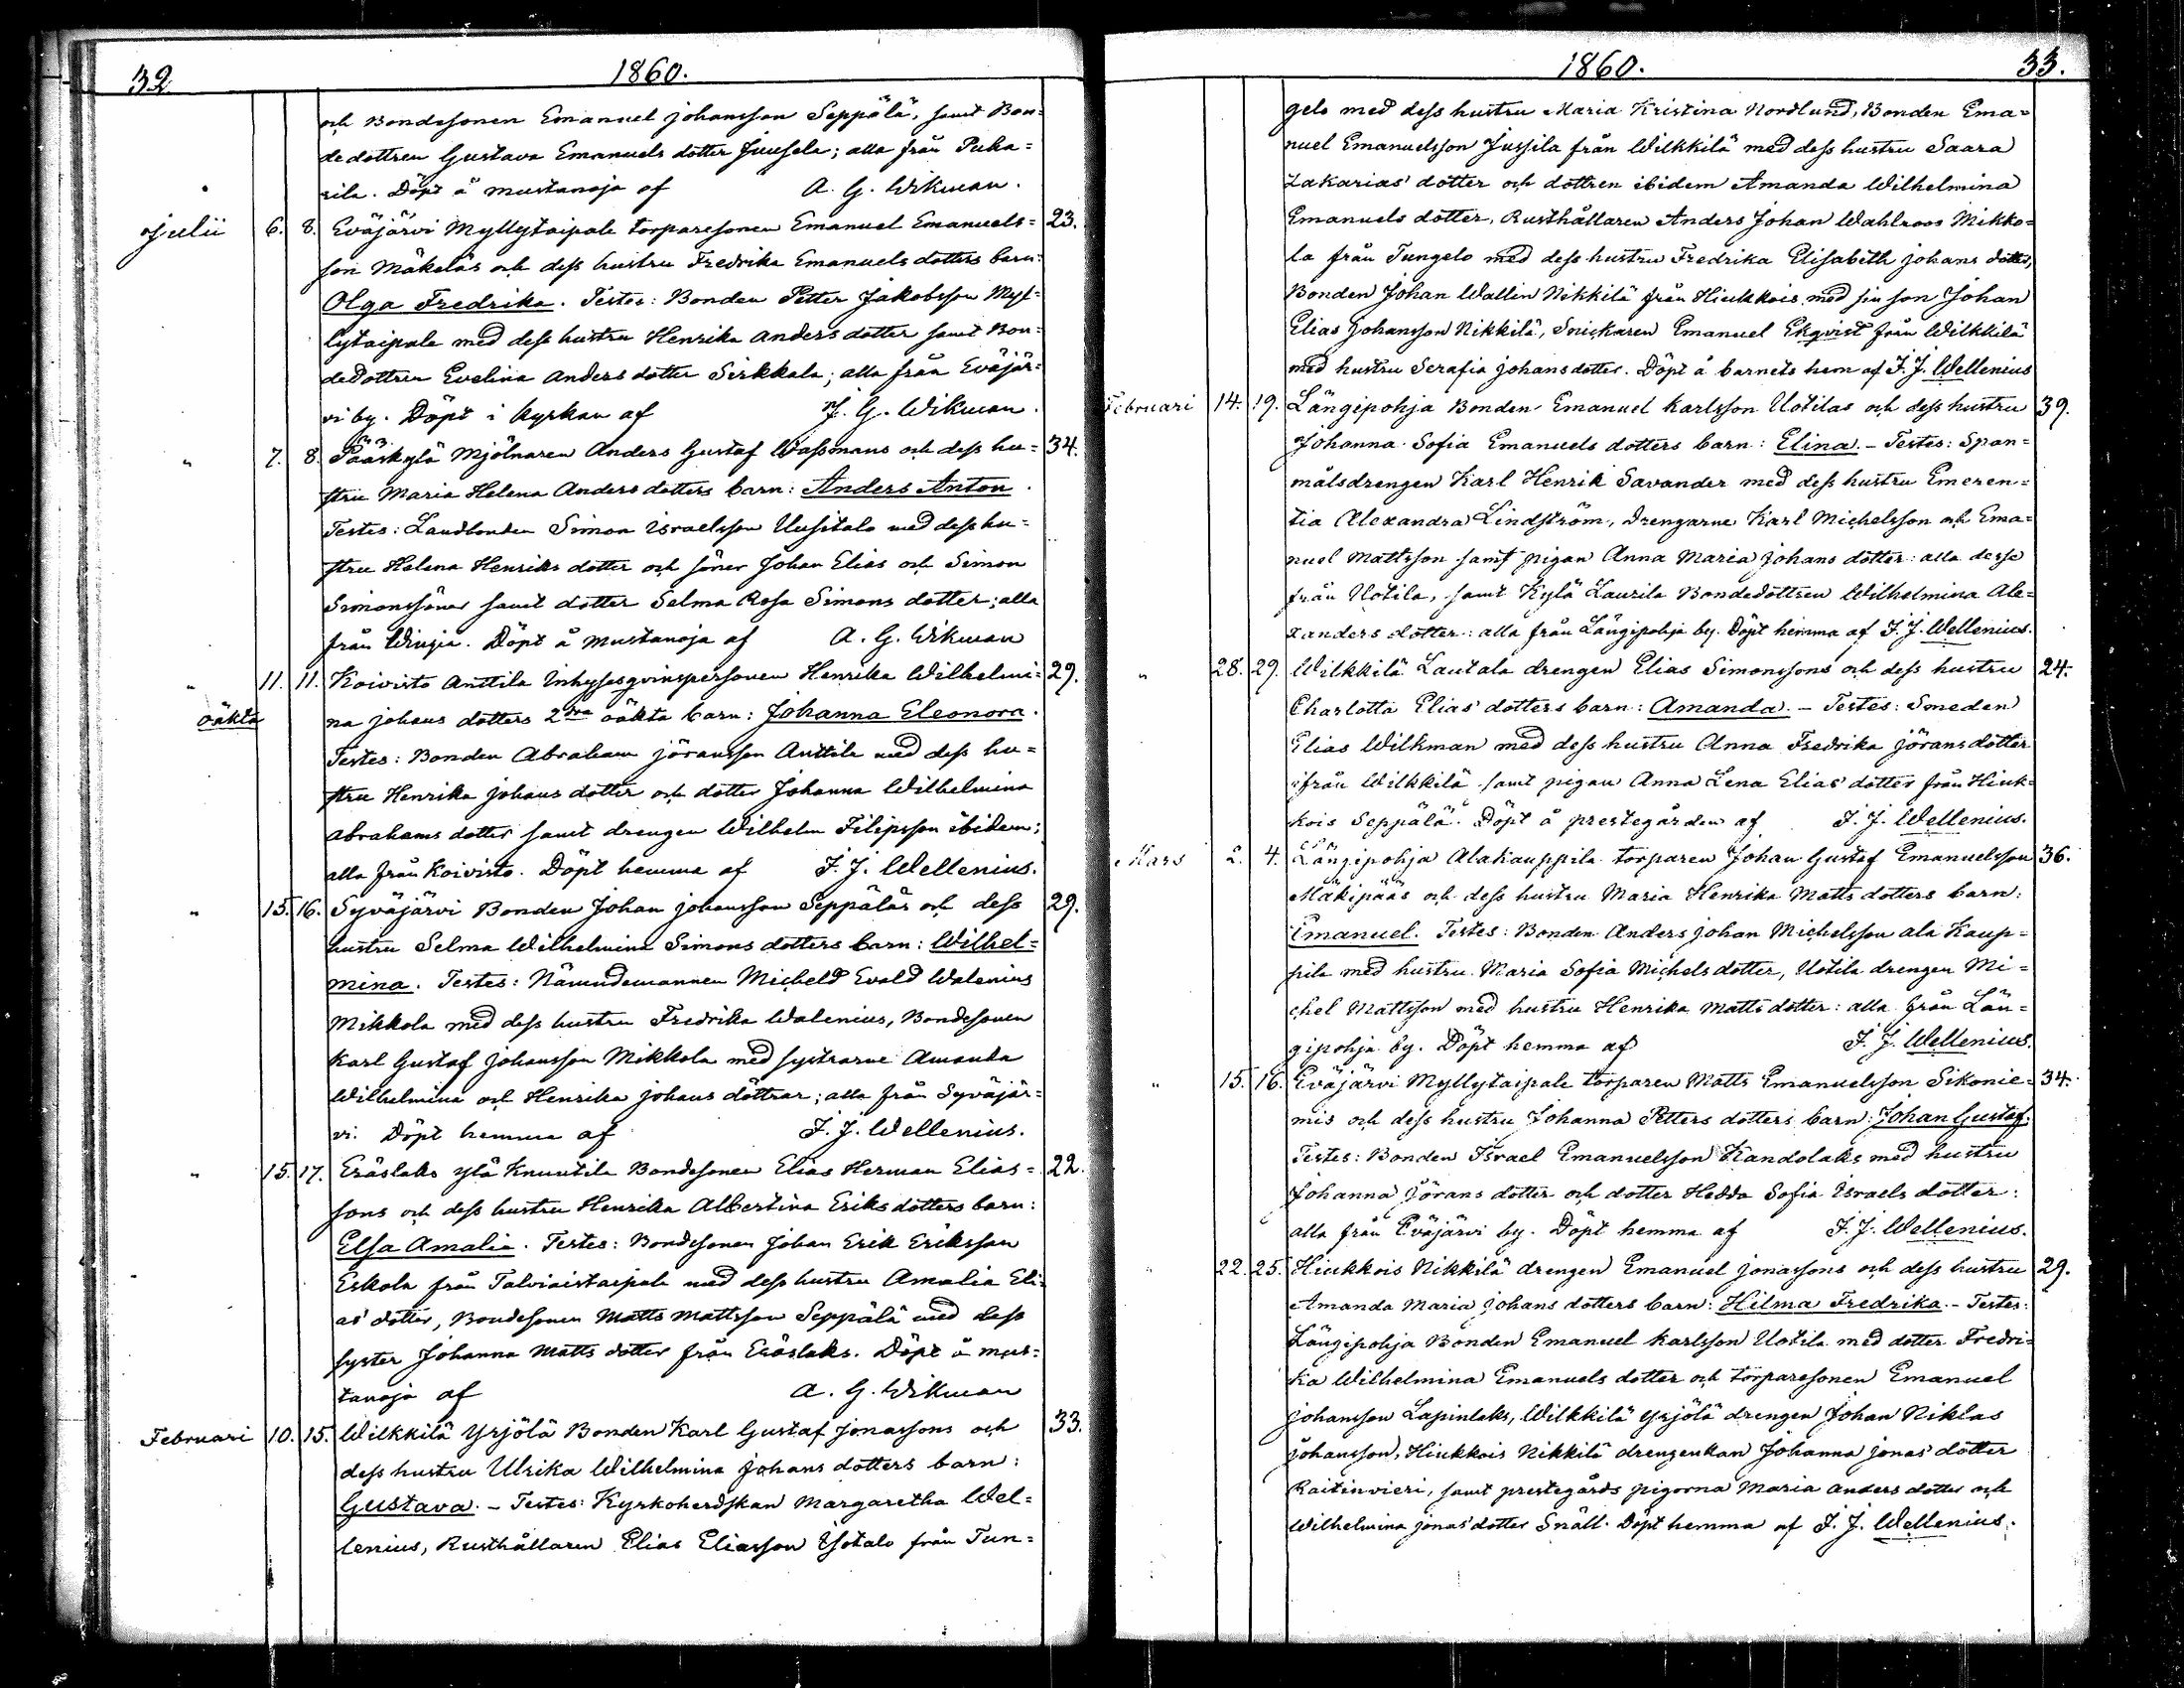 32
1860.
och Bondesonen Emanuel Johansson Seppälä, samt Bon=
dedottren Gustava Emanuels dotter Juusela; alla från Puka=
rila. Döpt å Mustanoja af A. G. Wikman.
Julii 6. 8. Eväjärvi Myllytaipale torparesonen Emanuel Emanuels= 23.
son Mäkeläs och dess hustru Fredrika Emanuels dotters barn:
Olga Fredrika. Testes: Bonden Petter Jakobsson Myl=
lytaipale med dess hustru Henrika Anders dotter samt Bon=
dedottren Evelina Anders dotter Sirkkala; alla från Eväjär=
vi by. Döpt i kyrkan af J. G. Wikman.
" 7. 8. Pääskylä Mjölnaren Anders Gustaf Wassmans och dess hu= 34.
stru Maria Helena Anders dotters barn: Anders Anton.
Testes: Landbonden Simon Israelsson Uusitalo med dess hu=
stru Helena Henriks dotter och söner Johan Elias och Simon
Simonssöner samt dotter Selma Rosa Simons dotter; alla
från Wingia. Döpt å Mustanoja af A. G. Wikman
" 11. 11. Koivisto Anttila Inhysesqvinspersonen Henrika Wilhelmi= 29.
oäkta na Johans dotters 2dra oäkta barn: Johanna Eleonora.
Testes: Bonden Abraham Jöransson Anttila med dess hu=
stru Henrika Johans dotter och dotter Johanna Wilhelmina
Abrahams dotter samt drengen Wilhelm Filipsson ibidem;
alla från Koivisto. Döpt hemma af J. J. Wellenius.
" 15. 16. Syväjärvi Bonden Johan Johansson Seppäläs och dess 29.
hustru Selma Wilhelmina Simons dotters barn: Wilhel=
mina. Testes: Nämndemannen Micheld Evald Walenius
Mikkola med dess hustru Fredrika Walenius, Bondesonen
Karl Gustaf Johansson Mikkola med systrarne Amanda
Wilhelmina och Henrika Johans döttrar; alla från Syväjär=
vi. Döpt hemma af J. J. Wellenius.
" 15. 17. Eräslaks Ylä Knuutila Bondesonen Elias Herman Elias= 22.
sons och dess hustru Henrika Albertina Eriks dotters barn:
Elsa Amalia. Testes: Bondesonen Johan Erik Eriksson
Eskola från Talviaistaipale med dess hustru Amalia Eli=
as' dotter, Bondesonen Matts Mattsson Seppälä med dess
syster Johanna Matts dotter från Eräslaks. Döpt å Mus=
tanoja af A. G. Wikman
Februari 10. 15. Wilkkilä Yrjölä Bonden Karl Gustaf Jonassons och 33.
dess hustru Ulrika Wilhelmina Johans dotters barn:
Gustava. – Testes: Kyrkoherdskan Margaretha Wel=
lenius, Rusthållaren Elias Eliasson Isotalo från Tun=
1860.
33.
gelo med dess hustru Maria Kristina Nordlund, Bonden Ema=
nuel Emanuelsson Jussila från Wilkkilä med dess hustru Saara
Zakarias' dotter och dottren ibidem Amanda Wilhelmina
Emanuels dotter, Rusthållaren Anders Johan Wahlroos Mikko=
la från Tungelo med dess hustru Fredrika Elisabeth Johans dotter,
Bonden Johan Wallin Nikkilä från Hiukkois med sin son Johan
Elias Johansson Nikkilä, Snickaren Emanuel Ekqvist från Wilkkilä
med hustru Serafia Johans dotter. Döpt å barnets hem af J. J. Wellenius
Februari 14. 19. Längipohja Bonden Emanuel Karlsson Uotilas och dess hustru 39.
Johanna Sofia Emanuels dotters barn: Elina. – Testes: Span=
målsdrengen Karl Henrik Savander med dess hustru Emeren=
tia Alexandra Lindström, drengarne Karl Michelsson och Ema=
nuel Mattsson samt pigan Anna Maria Johans dotter: alla desse
från Uotila, samt Kylä Laurila Bondedottren Wilhelmina Ale=
xanders dotter: alla från Längipohja by. Döpt hemma af J. J. Wellenius.
" 28. 29. Wilkkilä Lautala drengen Elias Simonssons och dess hustru 24.
Charlotta Elias' dotters barn: Amanda. – Testes: Smeden
Elias Wilkman med dess hustru Anna Fredrika Jörans dotter
ifrån Wilkkilä samt pigan Anna Lena Elias' dotter från Hiuk=
kois Seppälä. Döpt å prestegården af J. J. Wellenius.
Mars 2. 4. Längipohja Alakauppila torparen Johan Gustaf Emanuelsson 36.
Mäkipääs och dess hustru Maria Henrika Matts dotters barn:
Emanuel. Testes: Bonden Anders Johan Michelsson ala Kaup=
pila med hustru Maria Sofia Michels dotter, Uotila drengen Mi=
chel Mattsson med hustru Henrika Matts dotter: alla från Län=
gipohja by. Döpt hemma af J. J. Wellenius.
" 15. 16. Eväjärvi Myllytaipale torparen Matts Emanuelsson Sikonie= 34.
mis och dess hustru Johanna Petters dotters barn: Johan Gustaf.
Testes: Bonden Israel Emanuelsson Kandolaks med hustru
Johanna Jörans dotter och dotter Hedda Sofia Israels dotter:
alla från Eväjärvi by. Döpt hemma af J. J. Wellenius.
" 22. 25. Hiukkois Nikkilä drengen Emanuel Jonassons och dess hustru 29.
Amanda Maria Johans dotters barn: Hilma Fredrika. – Testes:
Längipohja Bonden Emanuel Karlsson Uotila med dotter Fredri=
ka Wilhelmina Emanuels dotter och torparesonen Emanuel
Johansson Lapinlaks, Wilkkilä Yrjölä drengen Johan Niklas
Johansson, Hiukkois Nikkilä drengenkan Johanna Jonas' dotter
Raitinvieri, samt prestegårds pigorna Maria Anders dotter och
Wilhelmina Jonas' dotter Snäll. Döpt hemma af J. J. Wellenius.